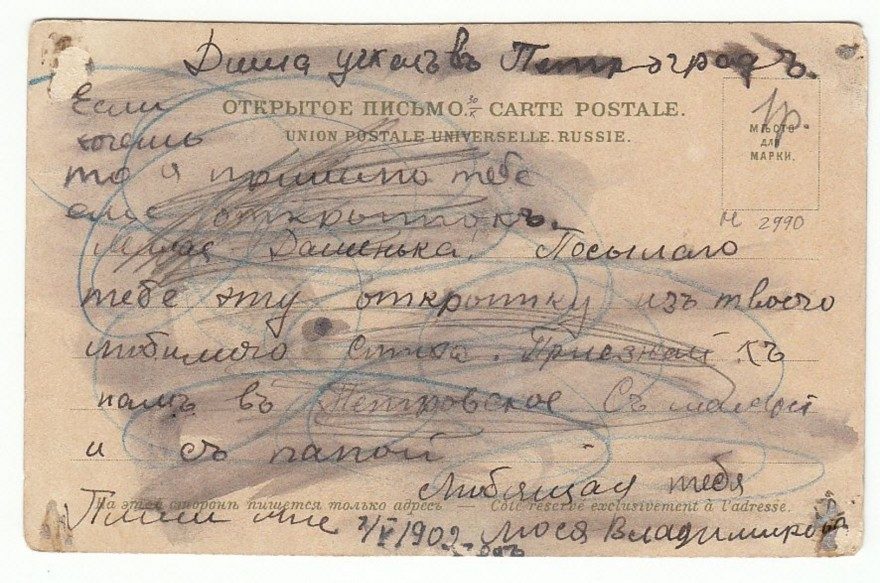 Дима уехалъ въ Петроградъ.
Если
хочешь
то я пришлю тебе
еще открытокъ.
ОТКРЫТОЕ ПИСЬМО. CARTE POSTALE.
UNION POSTALE UNIVERSELLE. RUSSIE.
МѢСТО
ДЛЯ
МАРКИ.
1р.
М 2990
Милая Дашенька. Посылаю
тебе эту открытку изъ твоего
любимого стиха. Приезжай къ
намъ въ Петровское съ мамой
и съ папой
Любящая тебя
На этой сторонѣ пишется только адресъ — Côté réservé exclusivement à l'adresse.
Пиши мне 1902 Люся Владимирова